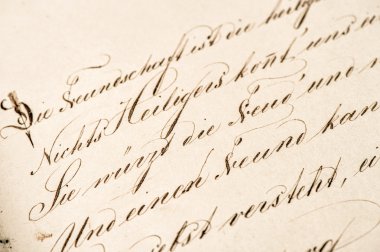 Die Freundschaft ist die heilig
Nichts Heiligers konnt' uns u
Sie würzt die Freud' und
Und einen Freund kan
selbst versteht, ei